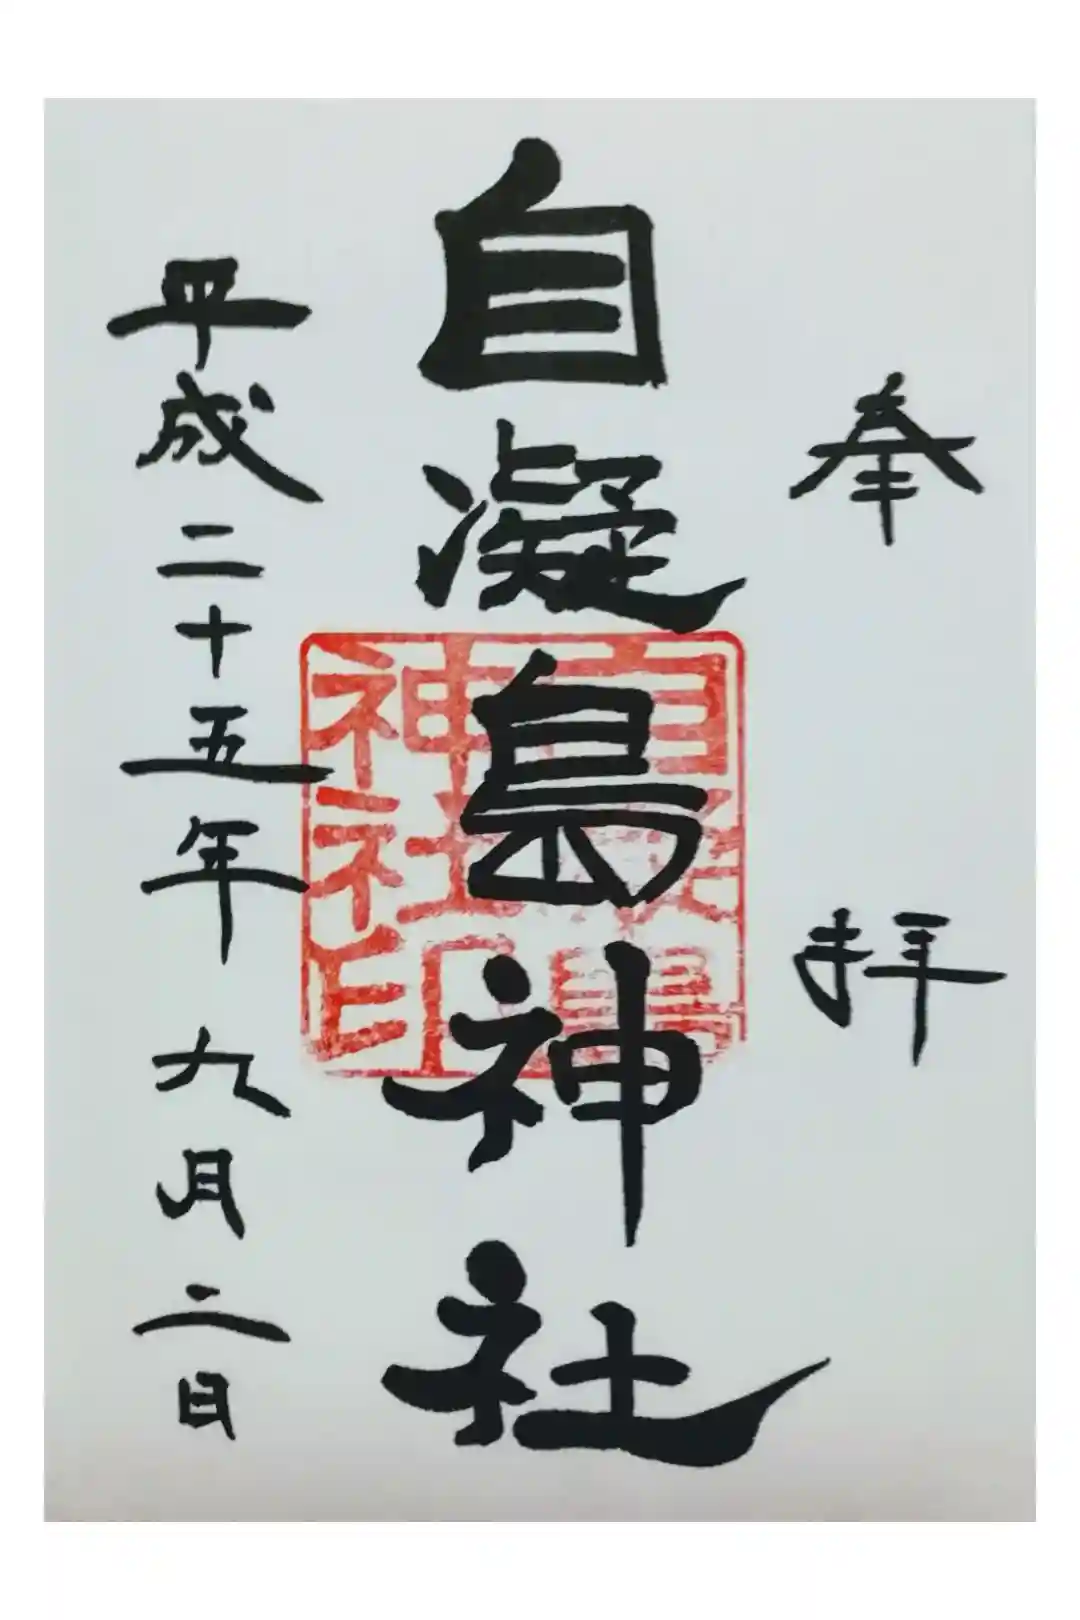 奉拝
自凝島神社
自凝島
神社印
平成二十五年九月二日